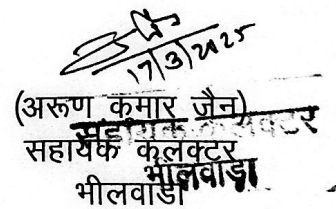 17/3/2025
(अरूण कुमार जैन)
सहायक कलक्टर
सहायक कलक्टर
भीलवाड़ा
भीलवाड़ा